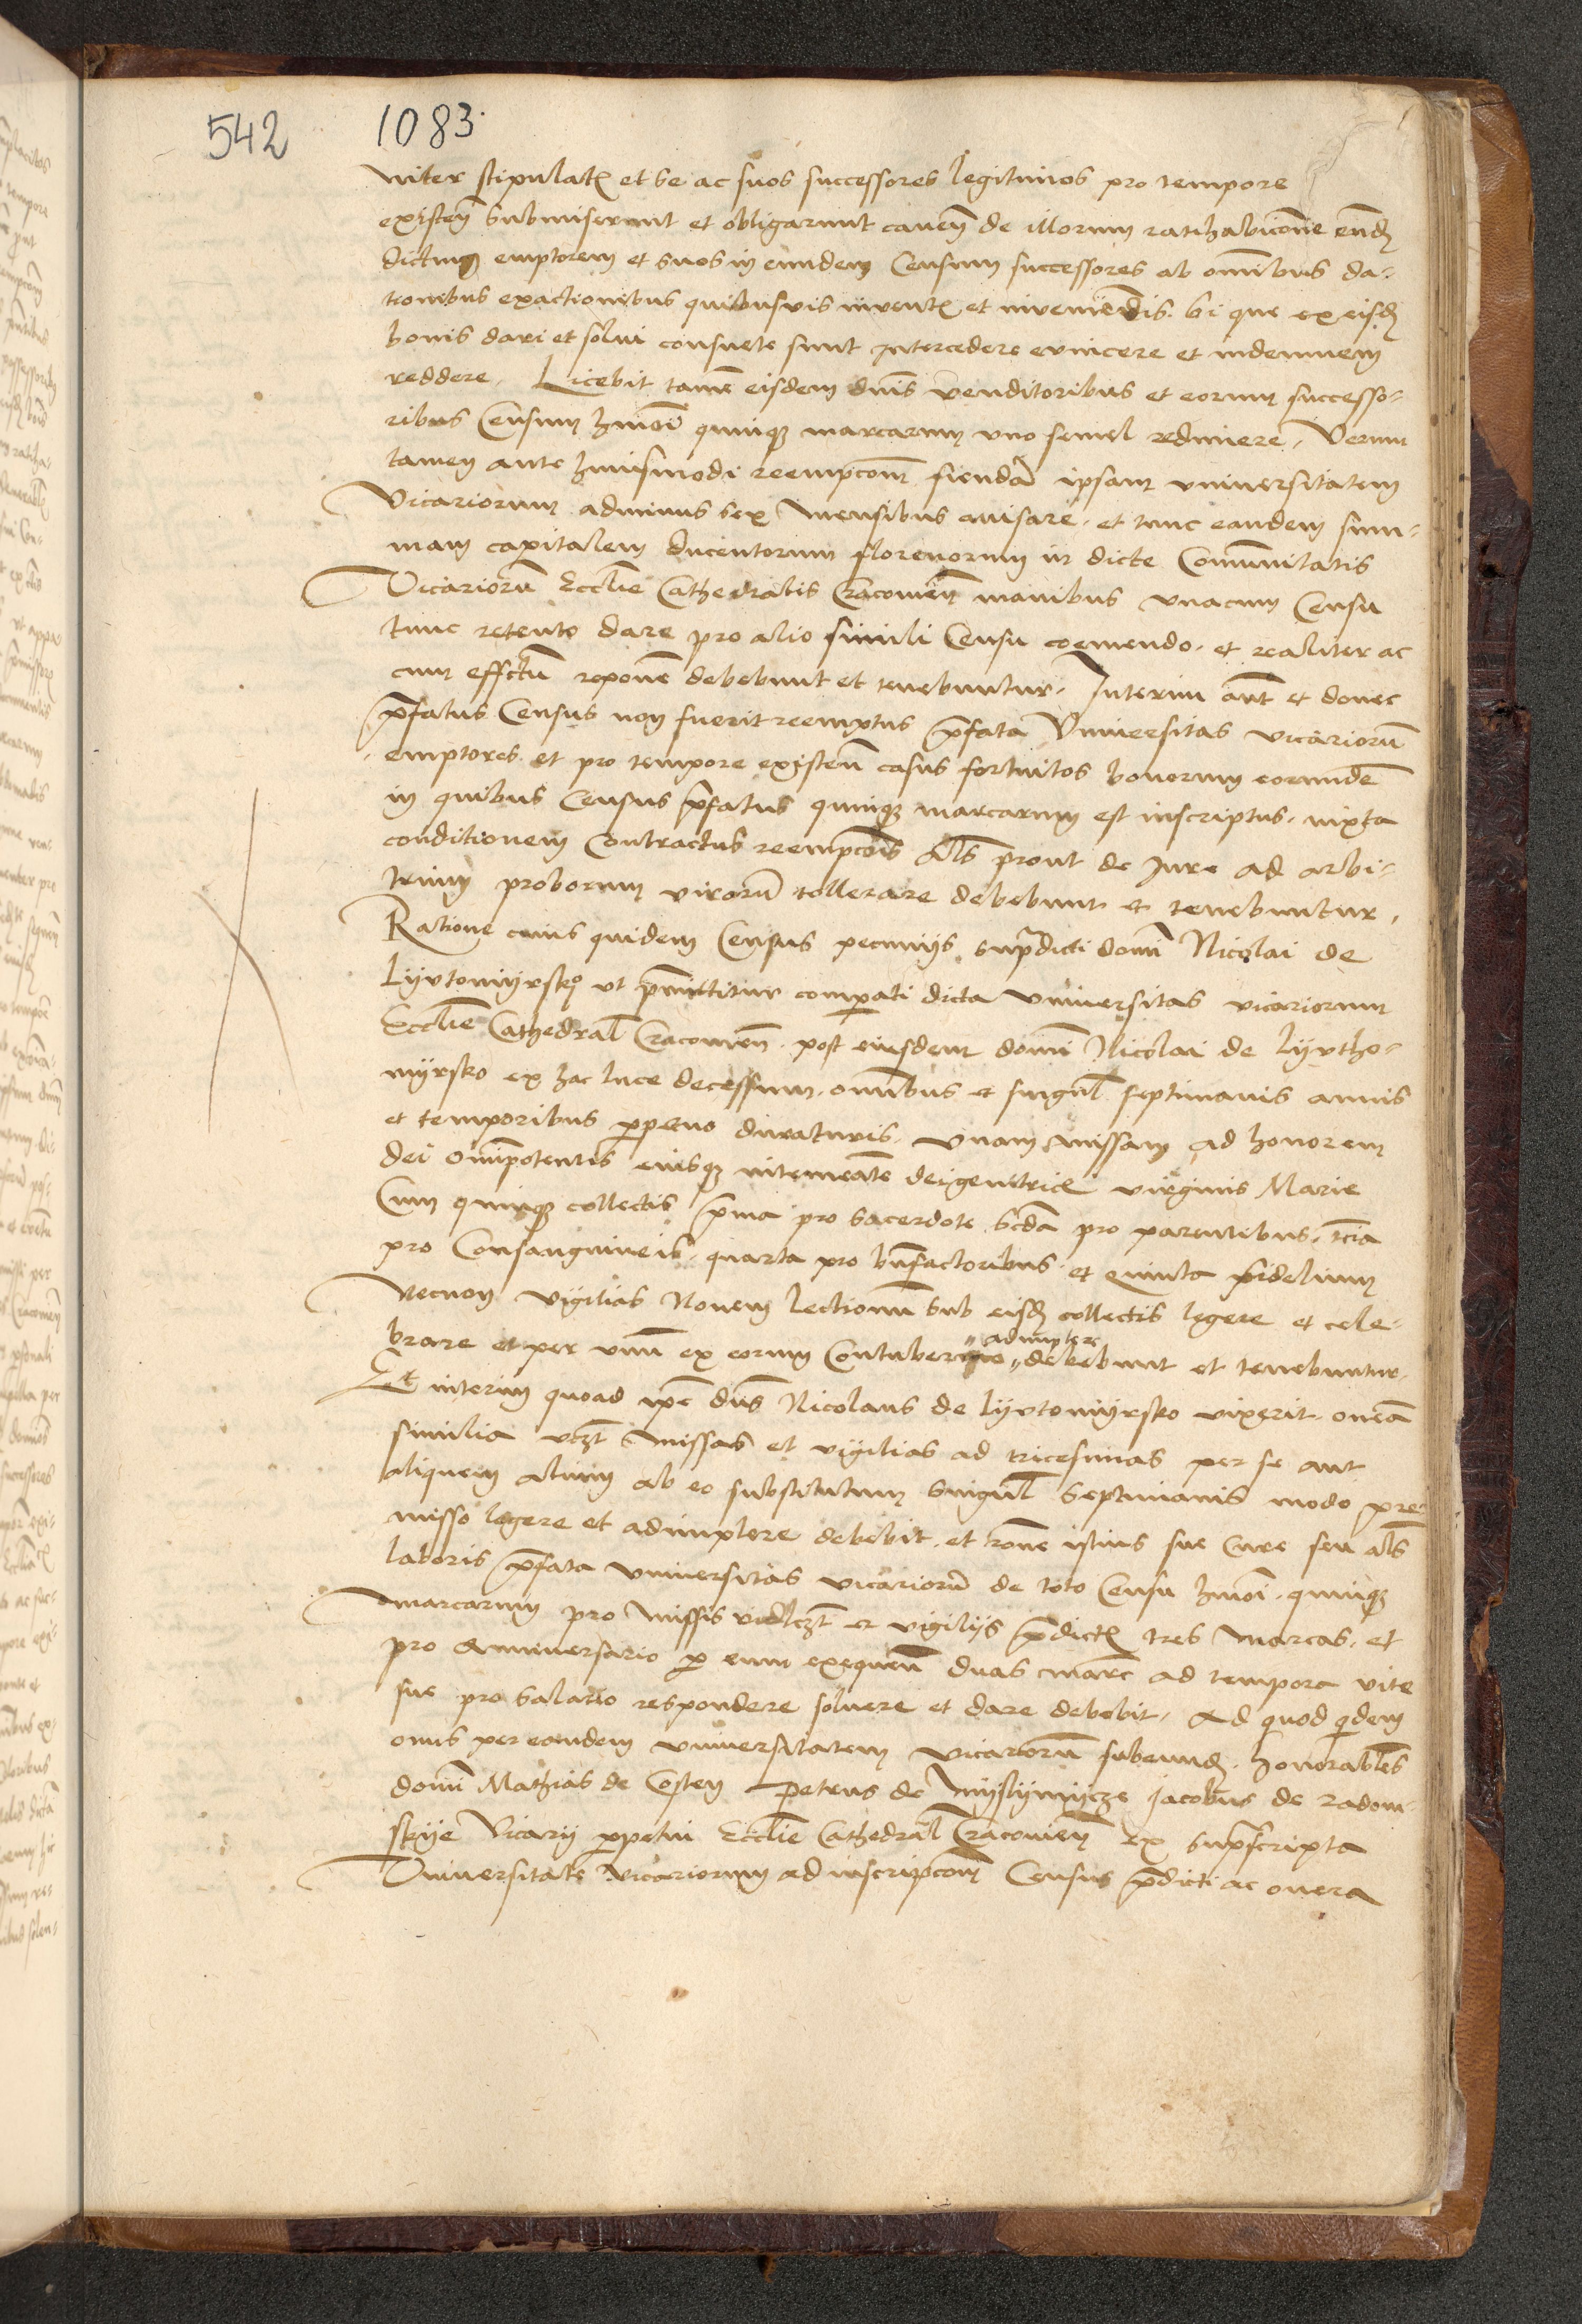 542 1083.
niter stipulat et se ac suos successores legitimos pro tempore
existen submiserunt et obligarunt caven de illorum ratihabicione eund
dictum emptorem et suos in eundem Censum successores ab omibus da-
tionibus exactionibus quibusvis invent et inveniendis. si que ex eisd
bonis dari et solui consuete sunt intercedere evincere et indemnem
reddere. Licebit tame eisdem dnis venditoribus et eorum successo-
ribus Censum hmoi quinq marcarum vno semel redimere, Verum
tamen ante huiusmodi reempcom fienda ipsam vniuersitatem
Vicariorum adminus sex Mensibus auisare. et tunc eandem sum-
mam capitalem ducentorum florenorum in dicte Comunitatis
Vicarioru Ecclie Cathedralis Cracouien manibus vnacum Censu
tunc retento dare pro alio simili Censu coemendo. et realiter ac
cum effctu repone debebunt et tenebuntur. Interim aut et donec
pfatus Census non fuerit reemptus pfata Vniuersitas vicarioru
emptores et pro tempore existen casus fortuitos bonorum eorunde
in quibus Census pfatus quinq marcarum est inscriptus. iuxta
conditionem Contractus reempcois als prout de Jure ad arbi-
trium proborum viroru tollerare debebunt et tenebuntur.
Ratione cuius quidem Census pecunijs supradicti domi Nicolai de
Lyvtomyrsko vt pmittitur comparati dicta vniuersitas vicariorum
Ecclie Cathedral Cracouien. post eiusdem domi Nicolai de Lyvtho-
myrsko ex hac luce decessum. omibus et singul septimanis annis
et temporibus ppetuo duraturis. vnam missam ad honorem
dei omipotentis eiusq intemerate deigenitricis virginis Marie
Cum quinq collectis pma pro sacerdote scda pro parentibus. tcia
pro Consanguineis. quarta pro bnfactoribus. et Quinta pro fidelium
Necnon vigilias Novem lectionu sub eisd collectis legere et cele-
brare et per vnu ex eorum Contubernio "adimplere" debebunt et tenebuntur.
Et interim quoad ipe dns Nicolaus de lyvtomyrsko vixerit. onera
similia vczt Missas et vigilias ad tricesimas per se aut
aliquem alium ab eo substitutum singul Septimanis modo pre-
misso legere et adimplere debebit. et rone istius sue Cure seu als
laboris pfata vniuersitas vicarioru de toto Censu hmoi. quinq
marcarum pro Missis vidlczt et vigilijs pdict tres Marcas. et
pro Anniuersario p eum exequen duas marc ad tempora vite
sue pro salario respondere soluere et dare debebit. Ad quod qidem
onus per eandem vniuersitatem vicarioru subeund. honorabiles
domi Mathias de Costen Petrus de Myslymycze Jacobus de radom-
skye Vicarij ppetui Ecclie Cathedral Cracouien ex suprascripta
Vniuersitate vicariorum ad inscripcom Census pdicti ac onera